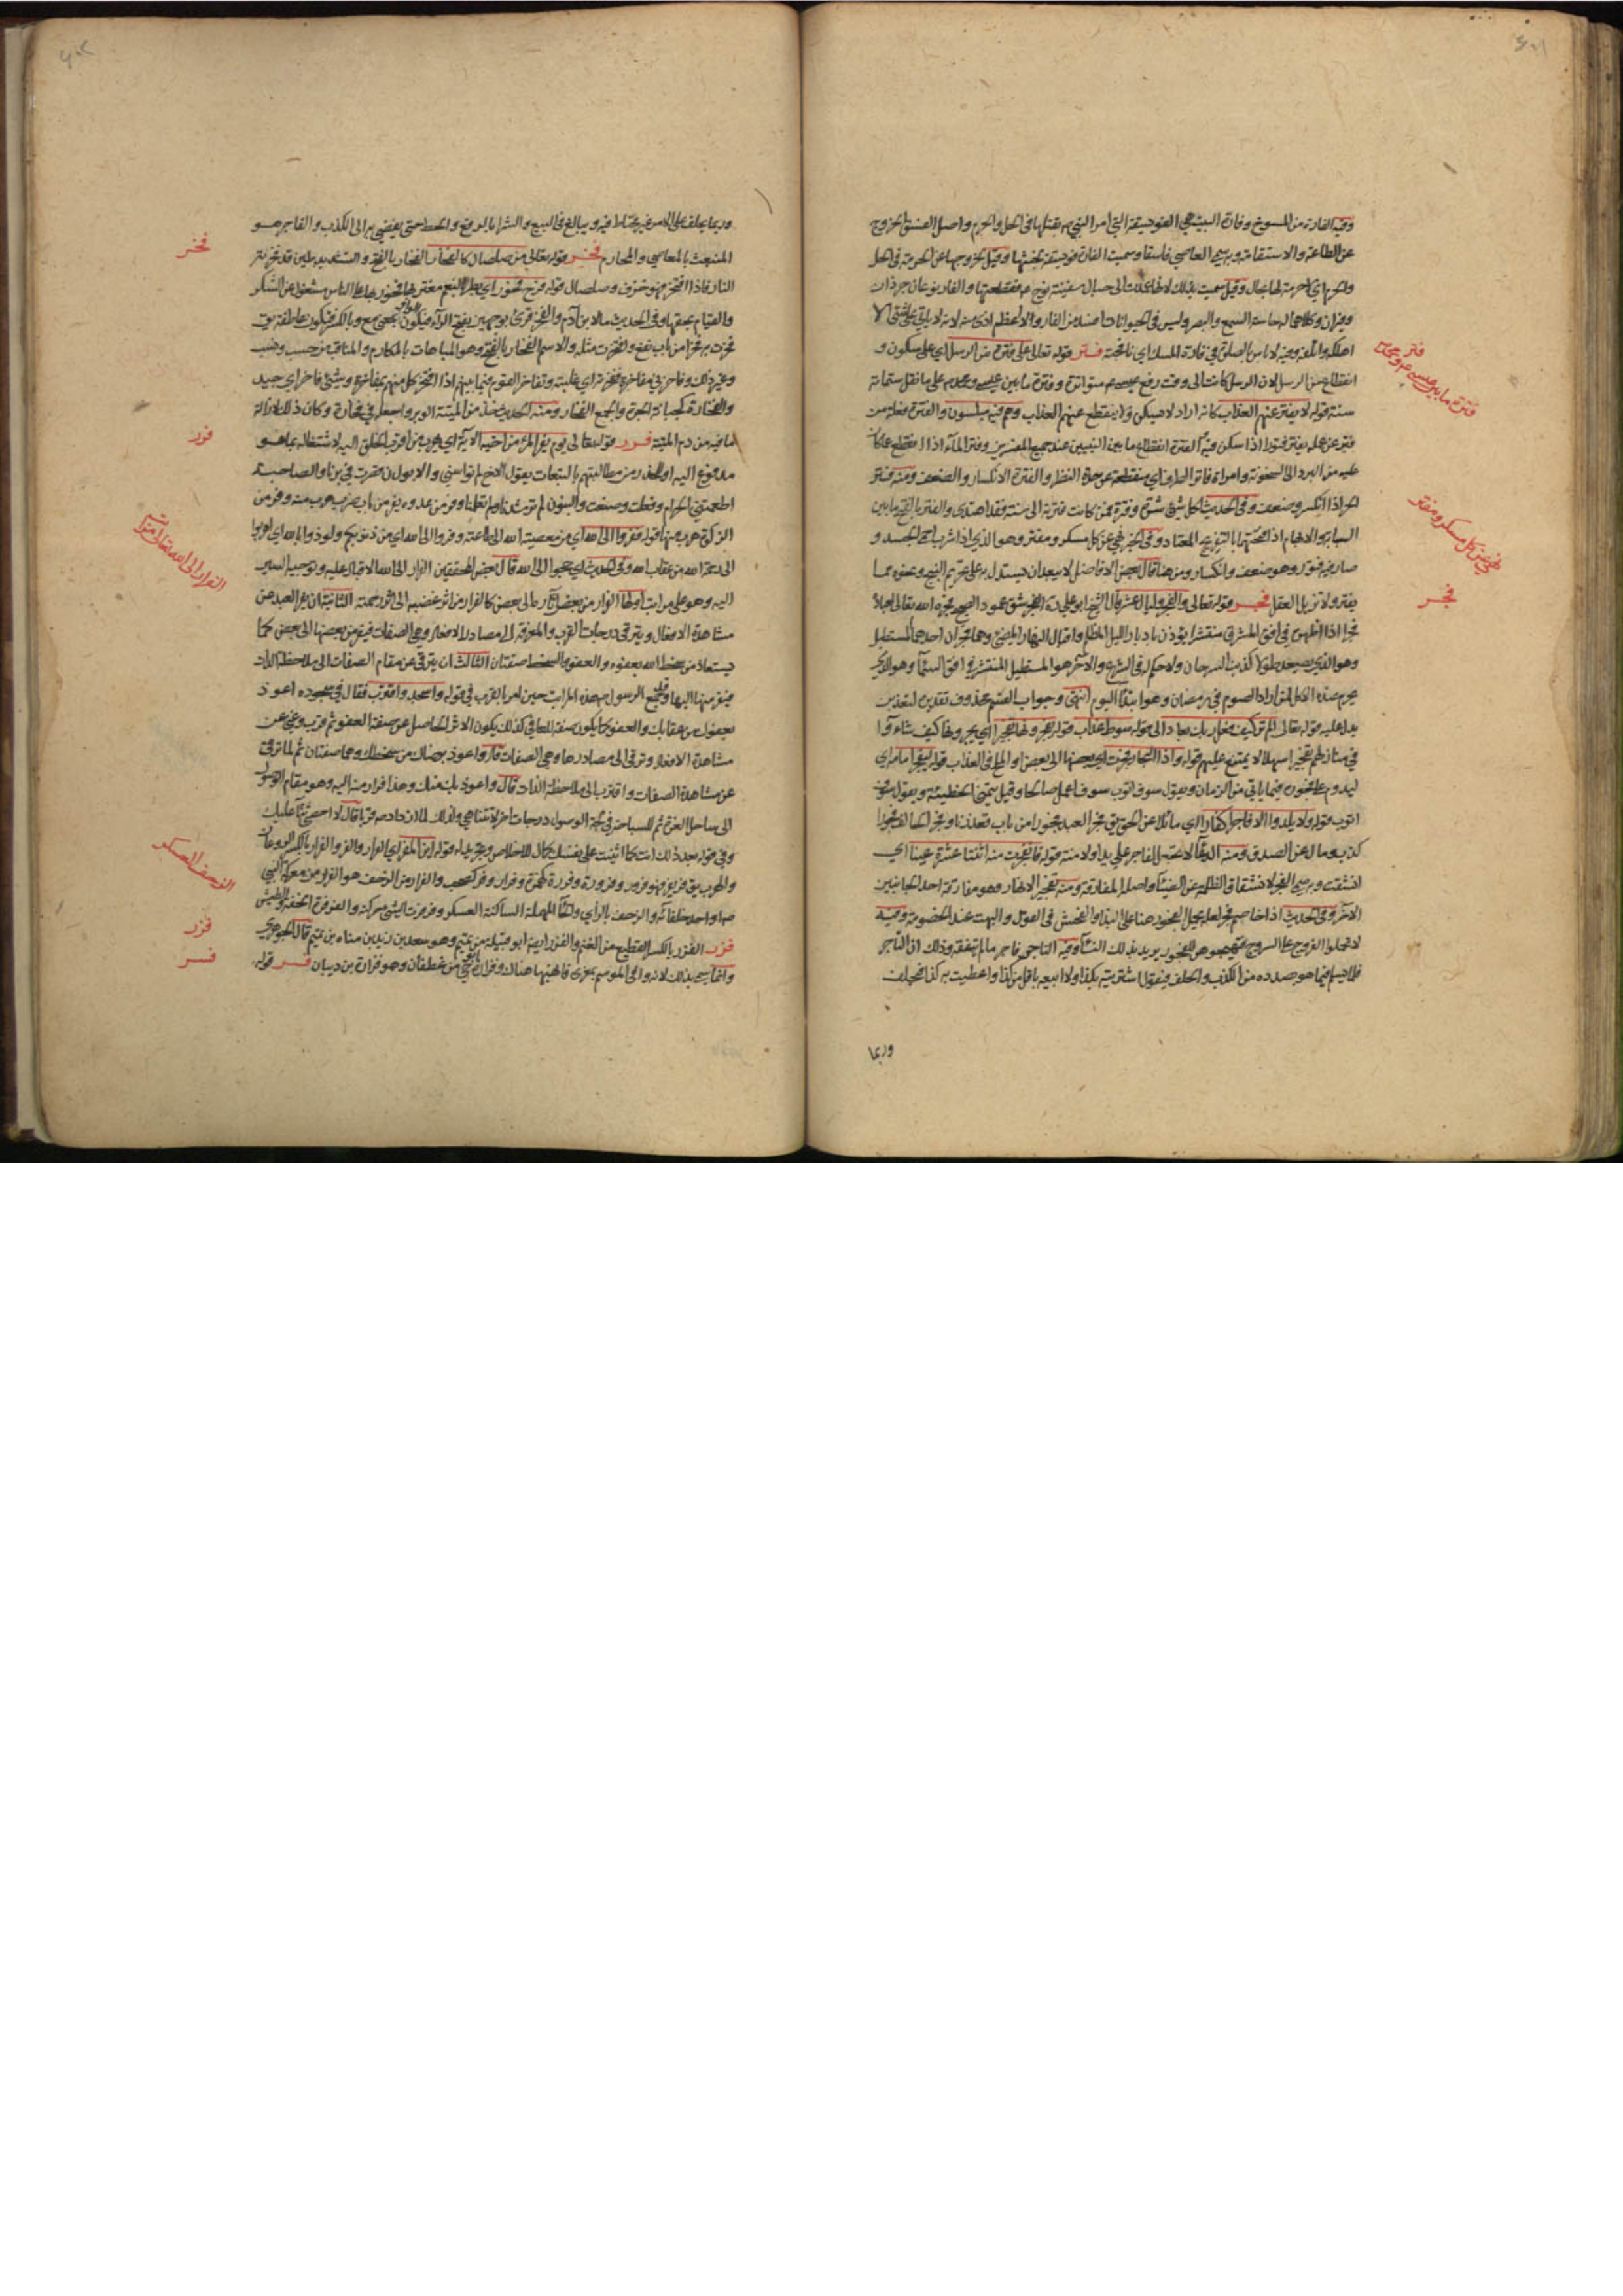 وفيه الفارة من المسوخ وفارة البيت هي الفويسقة التي امر النبي ص بقتلها في الحل والحرم واصل الفسق الخروج
عن الطاعة والاستقامة وبه سمي العاصي فاسقا وسميت الفارة فويسقة لخبثها وقيل لخروجها عن الحرمة في الحل
والحرم اي لا حرمة لها بحال وقيل سميت بذلك لانها عمدت الى حبال سفينة نوح ع فقطعتها والفار نوعان جرذان
وفيران وكلاهما له حاسة السمع والبصر وليس في الحيوانات افسد من الفار ولا اعظم اذى منه لانه لا ياتي على شيء الا
اهلكه واتلفه وفيه لا باس بالصلوة في فارة المسك اي نافجته فتر قوله تعالى على فترة من الرسل اي على سكون و
انقطاع من الرسل لان الرسل كانت الى وقت رفع عيسى ع متواترة وفترة ما بين عيسى ومحمد ص على ما نقل ستمائة
سنة قوله لا يفتر عنهم العذاب كانه اراد لا يسكن ولا ينقطع عنهم العذاب وهم فيه مبلسون والفترة فعلة من
فتر عن عمله يفتر فتورا اذا سكن فيه الفترة انقطاع ما بين النبيين عند جميع المفسرين وفتر الماء اذا انقطع عما كان
عليه من البرد الى السخونة وامراة فاتر الطرف اي منقطعة عن حدة النظر والفترة الانكسار والضعف ومنه فتر
الحر اذا انكسر وضعف وفي الحديث لكل شيء شرة وفترة فمن كانت فترته الى سنة فقد اهتدى والفتر بالكسر ما بين
السبابة والابهام اذا فتحتهما بالتفريج المعتاد وفي الخبر نهي عن كل مسكر ومفتر وهو الذي اذا شرب احمى الجسد و
صار فيه فتور وهو ضعف وانكسار ومن هنا قال بعض الافاضل لا يبعد ان يستدل به على تحريم البنج ونحوه مما
يفتر ولا يزيل العقل فجر قوله تعالى والفجر وليال عشر قال الشيخ ابو علي ره الفجر شق عمود الصبح فجره الله تعالى لعباده
فجرا اذا اظهره في افق المشرق منتشرا يؤذن بادبار الليل المظلم واقبال النهار المضيء وهما فجران احدهما المستطيل
وهو الذي يصعد طولا كذنب السرحان ولا حكم له في الشرع والآخر هو المستطيل المنتشر في افق السماء وهو الذي
يحرم عنده الاكل لمن اراد الصوم في شهر رمضان وهو ابتداء اليوم انتهى وجواب القسم محذوف تقديره لتعذبن
يدل عليه قوله تعالى الم تر كيف فعل ربك بعاد الى قوله سوط عذاب قوله يفجرونها تفجيرا اي يجرونها كيف شاءوا
في منازلهم تفجيرا سهلا لا يمتنع عليهم قوله واذا البحار فجرت اي بعضها الى بعض والملح في العذاب قوله ليفجر امامه اي
ليدوم على فجوره فيما ياتي من الزمان ويقول سوف اتوب سوف اعمل صالحا وقيل يتمنى الخطيئة ويقول سوف
اتوب قوله ولا يلدوا الا فاجرا كفارا اي مائلا عن الحق يق فجر العبد فجورا من باب قعد زنا وفجر الحالف فجورا
كذب ومال عن الصدق ومنه الدعاء لا تجعل للفاجر علي يدا ولا منة قوله فانفجرت منه اثنتا عشرة عينا اي
انشقت وبه سمي الفجر لانشقاق الظلمة عن الضياء واصله المفارقة ومنه تفجير الانهار وهو مفارقة احد الجانبين
الآخر وفي الحديث اذا خاصم فجر لعله يحمل الفجور هنا على البذاء والفحش في القول والبهت عند الخصومة وفيه
لا تحملوا الفروج على السروج فتهيجوهن للفجور يريد بذلك النساء وفيه التاجر فاجر ما لم يتفقه وذلك ان التاجر
قلما يسلم فيما هو بصدده من الكذب والحلف فيقول اشتريته بكذا ولا ابيعه باقل من كذا واعطيت به كذا فيحلف
وربما
فتر
فترة ما بين عيسى ع ومحمد ص
نهي عن كل مسكر ومفتر
فجر
وربما يحلف على الامر غير محتاط فيه ويبالغ في البيع والشرا بالرفع والحط حتى يفضي به الى الكذب والفاجر هو
المنبعث بالمعاصي والمحارم فخر قوله تعالى من صلصال كالفخار الفخار بالفتح والتشديد طين قد مسته
النار فاذا افتخر فهو خزف وصلصال قوله فرح فخور اي بطر بالنعم مغتر بها فخور بها على الناس مشغول عن الشكر
والقيام بحقها وفي الحديث ما لابن آدم والفخر قرئ بوجهين بفتح الراء فيكون الواو بمعنى مع وبالكسر فيكون عاطفة يق
فخرت به فخرا من باب نفع وافتخرت مثله والاسم الفخار بالفتح وهو المباهات بالمكارم والمناقب من حسب ونسب
وغير ذلك وفاخرني مفاخرة ففخرته اي غلبته وتفاخر القوم فيما بينهم اذا افتخر كل منهم بمفاخره وشيء فاخر اي جيد
والفخارة كجبانة الجرة والجمع الفخار ومنه الحديث خذ من الميتة الوبر واجعله في فخارة وكان ذلك لازالة
ما فيه من دم الميتة فرر قوله تعالى يوم يفر المرء من اخيه الآية اي يهرب من اقرب الخلق اليه لاشتغاله بما هو
مدفوع اليه او للحذر من مطالبتهم بالتبعات يقول الاخ لم تواسني والابوان قصرت في برنا والصاحبة
اطعمتني الحرام وفعلت وصنعت والبنون لم ترشدنا ولم تعلمنا وفر من عدوه يفر من باب ضرب هرب منه وفر من
الزكوة هرب منها قوله ففروا الى الله اي من معصية الله الى طاعته وفروا الى الله اي من ذنوبكم ولوذوا بالله اي اهربوا
الى رحمة الله من عقاب الله وفي الحديث اي حجوا الى الله قال بعض المحققين الفرار الى الله الاقبال عليه وتوجيه السير
اليه وهو على مراتب اولها الفرار من بعض آثاره الى بعض كالفرار من اثر غضبه الى اثر رحمته الثانية ان يفر العبد عن
مشاهدة الافعال ويترقى في درجات القرب والمعرفة الى مصادر الافعال وهي الصفات فيفر من بعضها الى بعض كما
يستعاذ من سخط الله بعفوه والعفو والسخط صفتان الثالث ان يترقى عن مقام الصفات الى ملاحظة الذات
فيفر منها اليها وقد جمع الرسول ص هذه المراتب حين امر بالقرب في قوله واسجد واقترب فقال في سجوده اعوذ
بعفوك من عقابك والعفو كما يكون صفة للعافي كذلك يكون الاثر الحاصل عن صفة العفو ثم قرب وغني عن
مشاهدة الافعال وترقى الى مصادرها وهي الصفات قال واعوذ برضاك من سخطك وهما صفتان ثم لما ترقى
عن مشاهدة الصفات واقترب الى ملاحظة الذات قال واعوذ بك منك وهذا فرار منه اليه وهو مقام الوصول
الى ساحل العزة ثم للسباحة في لجة الوصول درجات اخر لا تتناهي ولذلك لما ازداد ص قربا قال لا احصي ثناء عليك
وفي قوله بعد ذلك انت كما اثنيت على نفسك كمال للاخلاص وتجريد له قوله اين المفر اي الفرار والفر والفرار بالكسر الروغان
والهرب يق فر يفر فهو فرور وفرورة وفررة كهمزة وفرار وفر كصحب والفرار من الزحف هو الفرار من معركة النبي
ص او احد خلفائه والزحف بالزاي والحاء المهملة الساكنة العسكر وفرفرت الشيء حركته والفرفرة الخفة والطيش
فزر الفزر بالكسر القطيع من الغنم والفزر ايضا ابو قبيلة من تميم وهو سعد بن زيد بن مناة بن تميم قال الجوهري
وانما سمي بذلك لانه وافى الموسم بمعزى فانهبها هناك وفزارة ابو حي من غطفان وهو فزارة بن ذبيان فسر قوله
فخر
فرر
الفرار الى الله تعالى له مراتب
الزحف العسكر
فزر
فسر